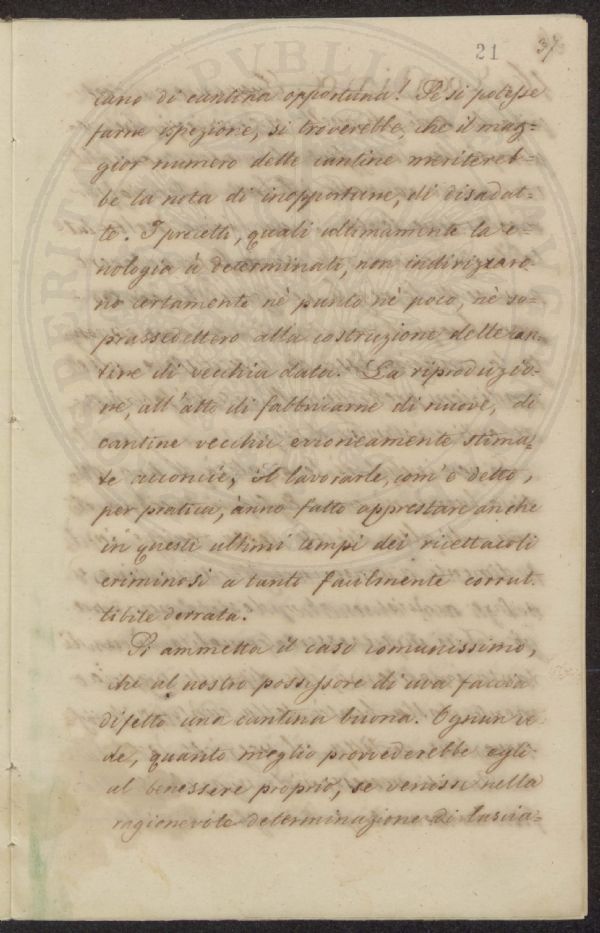 21 37
cano di cantina opportuna! Se si potesse
farne ispezione, si troverebbe, che il mag=
gior numero delle cantine meritereb=
be la nota di inopportune, di disadat=
te. I precetti, quali ultimamente la e=
nologia à determinati, non indirizzaro
no certamente nè punto nè poco, nè so=
prassedettero alla costruzione delle can=
tine di vecchia data. La riproduzio=
ne, all'atto di fabbricarne di nuove, di
cantine vecchie erroneamente stima=
te acconcie, il lavorarle, com'è detto,
per pratica, ànno fatto apprestare anche
in questi ultimi tempi dei ricettacoli
criminosi a tanto facilmente corrut
tibile derrata.
Si ammetta il caso comunissimo,
che al nostro possessore di uva faccia
difetto una cantina buona. Ognun ve=
de, quanto meglio provvederebbe egli
al benessere proprio, se venisse nella
ragionevole determinazione di lascia=